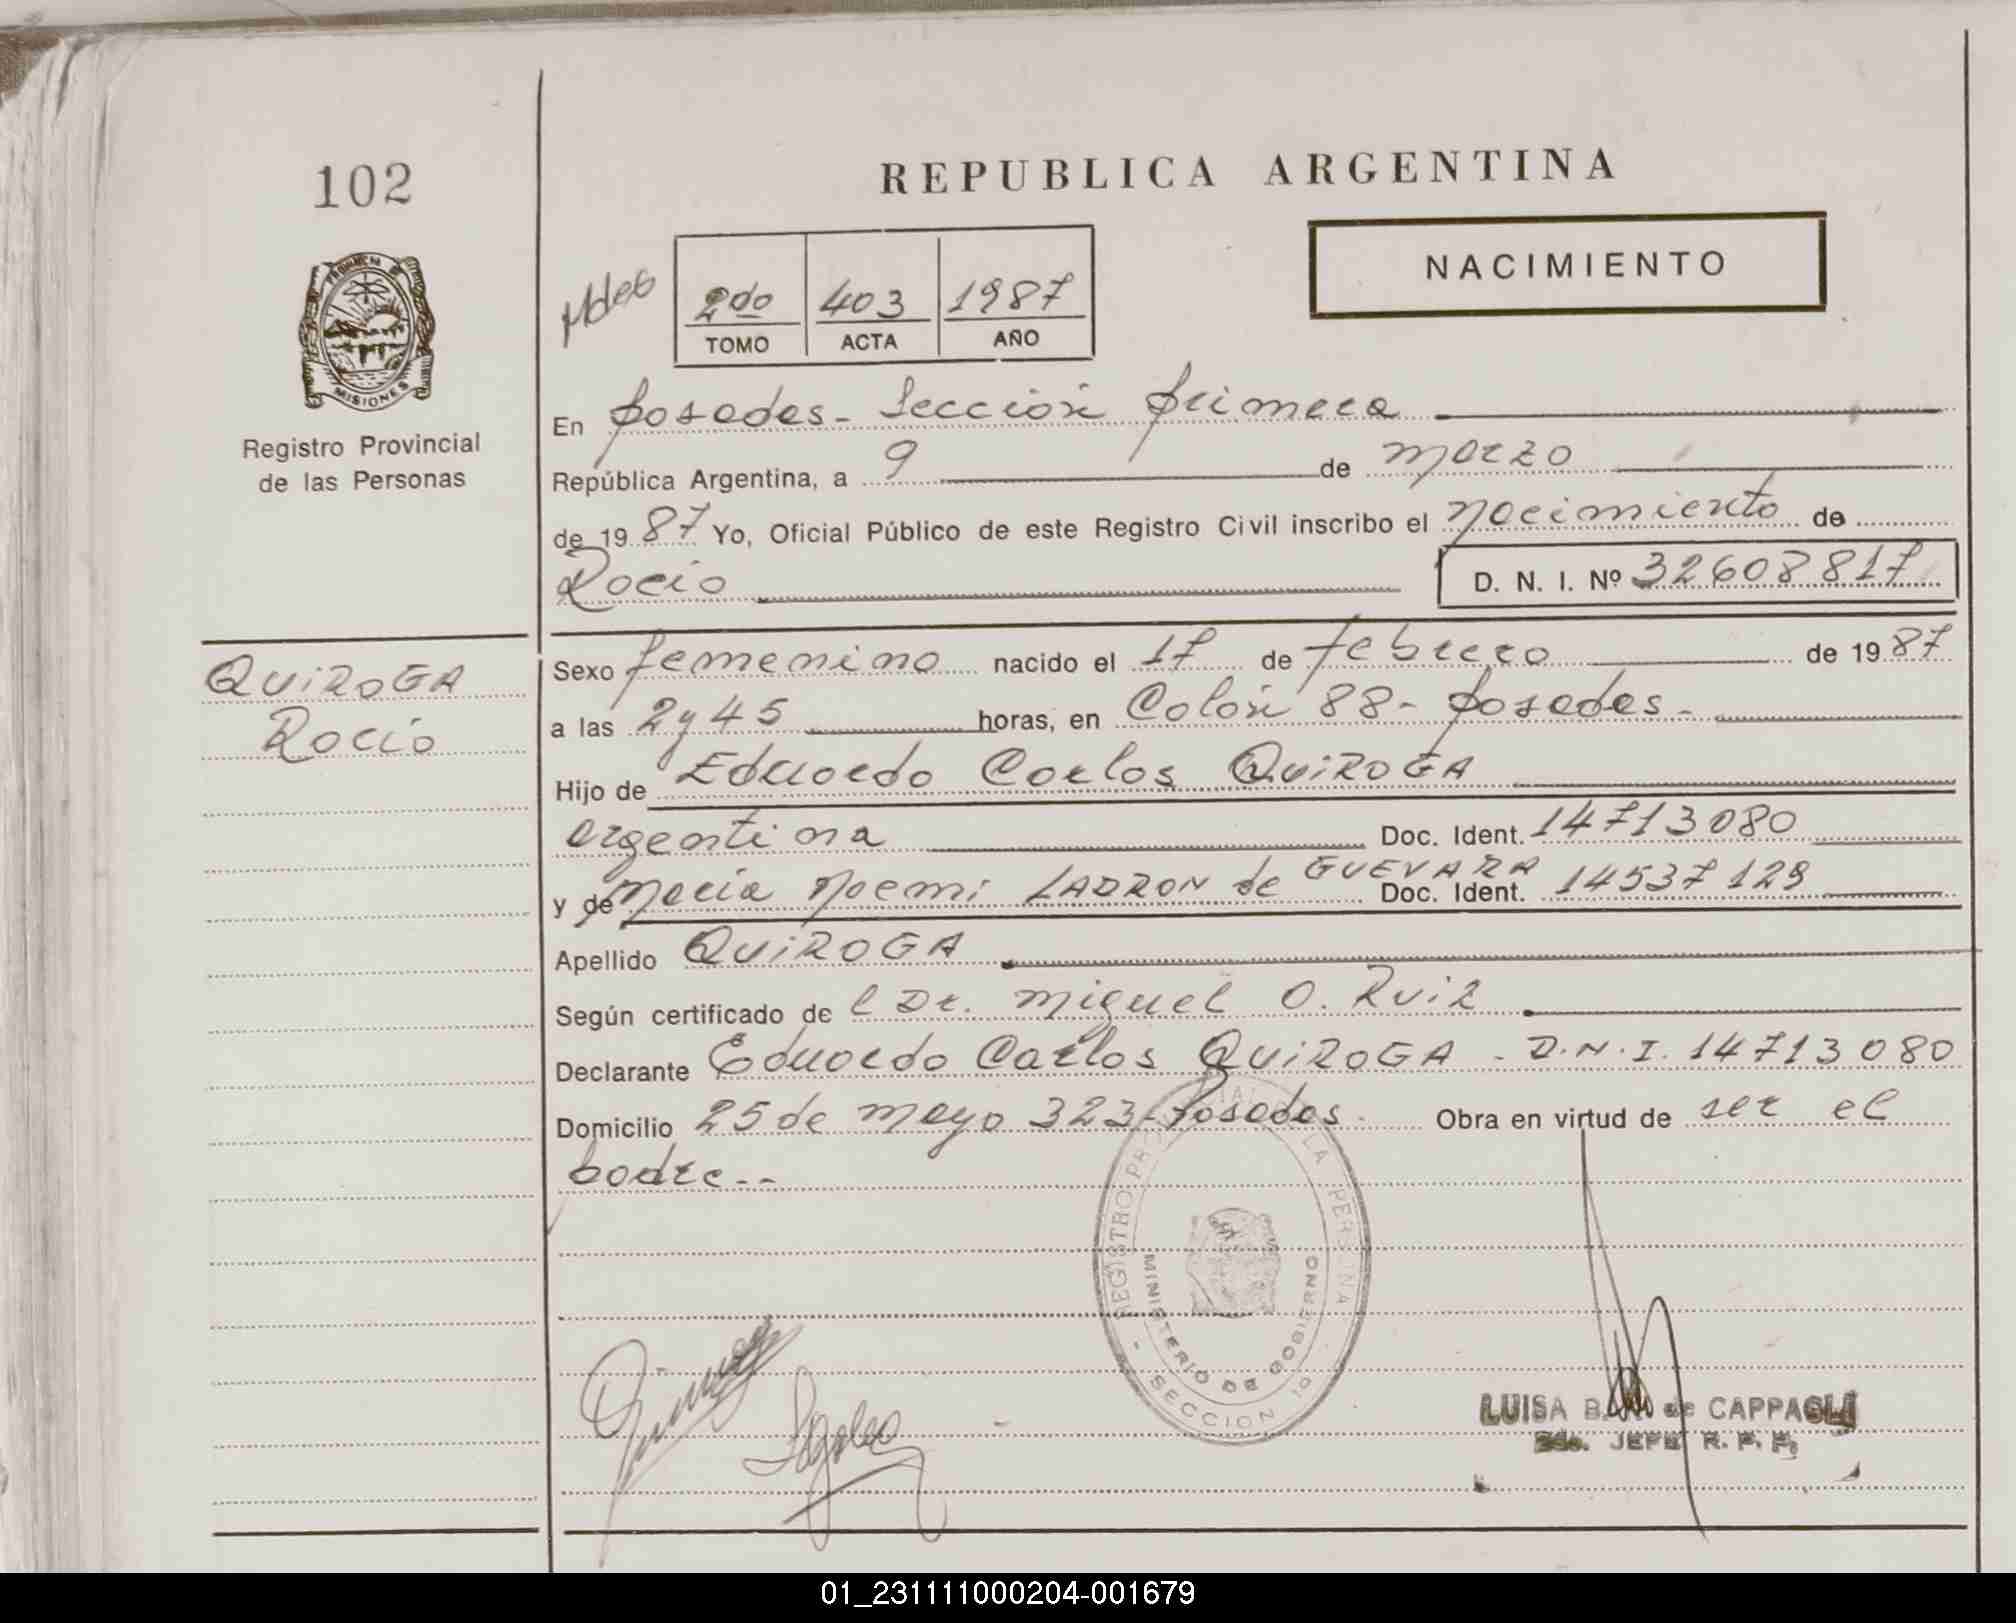 102
REPUBLICA ARGENTINA
NACIMIENTO
2do 403 1987
TOMO ACTA AÑO
PROVINCIA DE
MISIONES
Registro Provincial
de las Personas
En posadas - Sección primera
República Argentina, a 9 de marzo
de 1987 Yo, Oficial Público de este Registro Civil inscribo el nacimiento de
Rocío D. N. I. Nº 32608817
QUiROGA
Rocío
Sexo femenino nacido el 17 de febrero de 1987
a las 2 y 45 horas, en Colón 88 - posadas -
Hijo de Eduardo Carlos QUiROGA
argentina Doc. Ident. 14713080
y de María Noemi LADRON de GUEVARA Doc. Ident. 14537129
Apellido QUiROGA
Según certificado de l Dr. Miguel O. Ruiz
Declarante Eduardo Carlos QUiROGA - D.N.I. 14713080
Domicilio 25 de mayo 323 - Posadas - Obra en virtud de ser el
padre --
REGISTRO PROVINCIAL DE LA PERSONA
MINISTERIO DE GOBIERNO
- SECCION 1a -
LUISA B. de CAPPAGLI
2do. JEFE R. P. P.
01_231111000204-001679